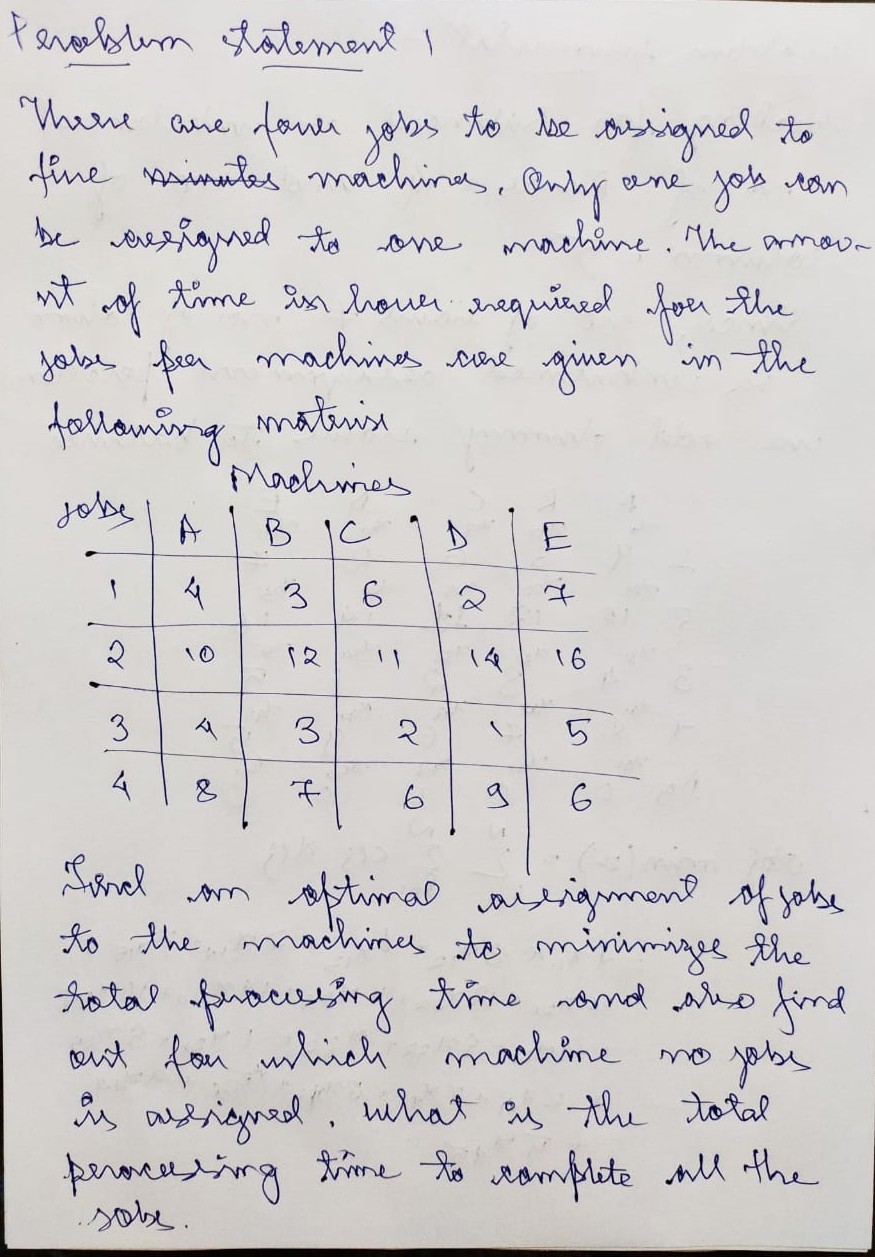 Problem statement 1
There are four jobs to be assigned to
five minutes machines. Only one job can
be assigned to one machine. The amou-
nt of time in hour required for the
jobs per machines are given in the
following matrix
Machines
jobs A B C D E
1 4 3 6 2 7
2 10 12 11 14 16
3 4 3 2 1 5
4 8 7 6 9 6
Find an optimal assignment of jobs
to the machines to minimizes the
total processing time and also find
out for which machine no jobs
is assigned, what is the total
processing time to complete all the
jobs.